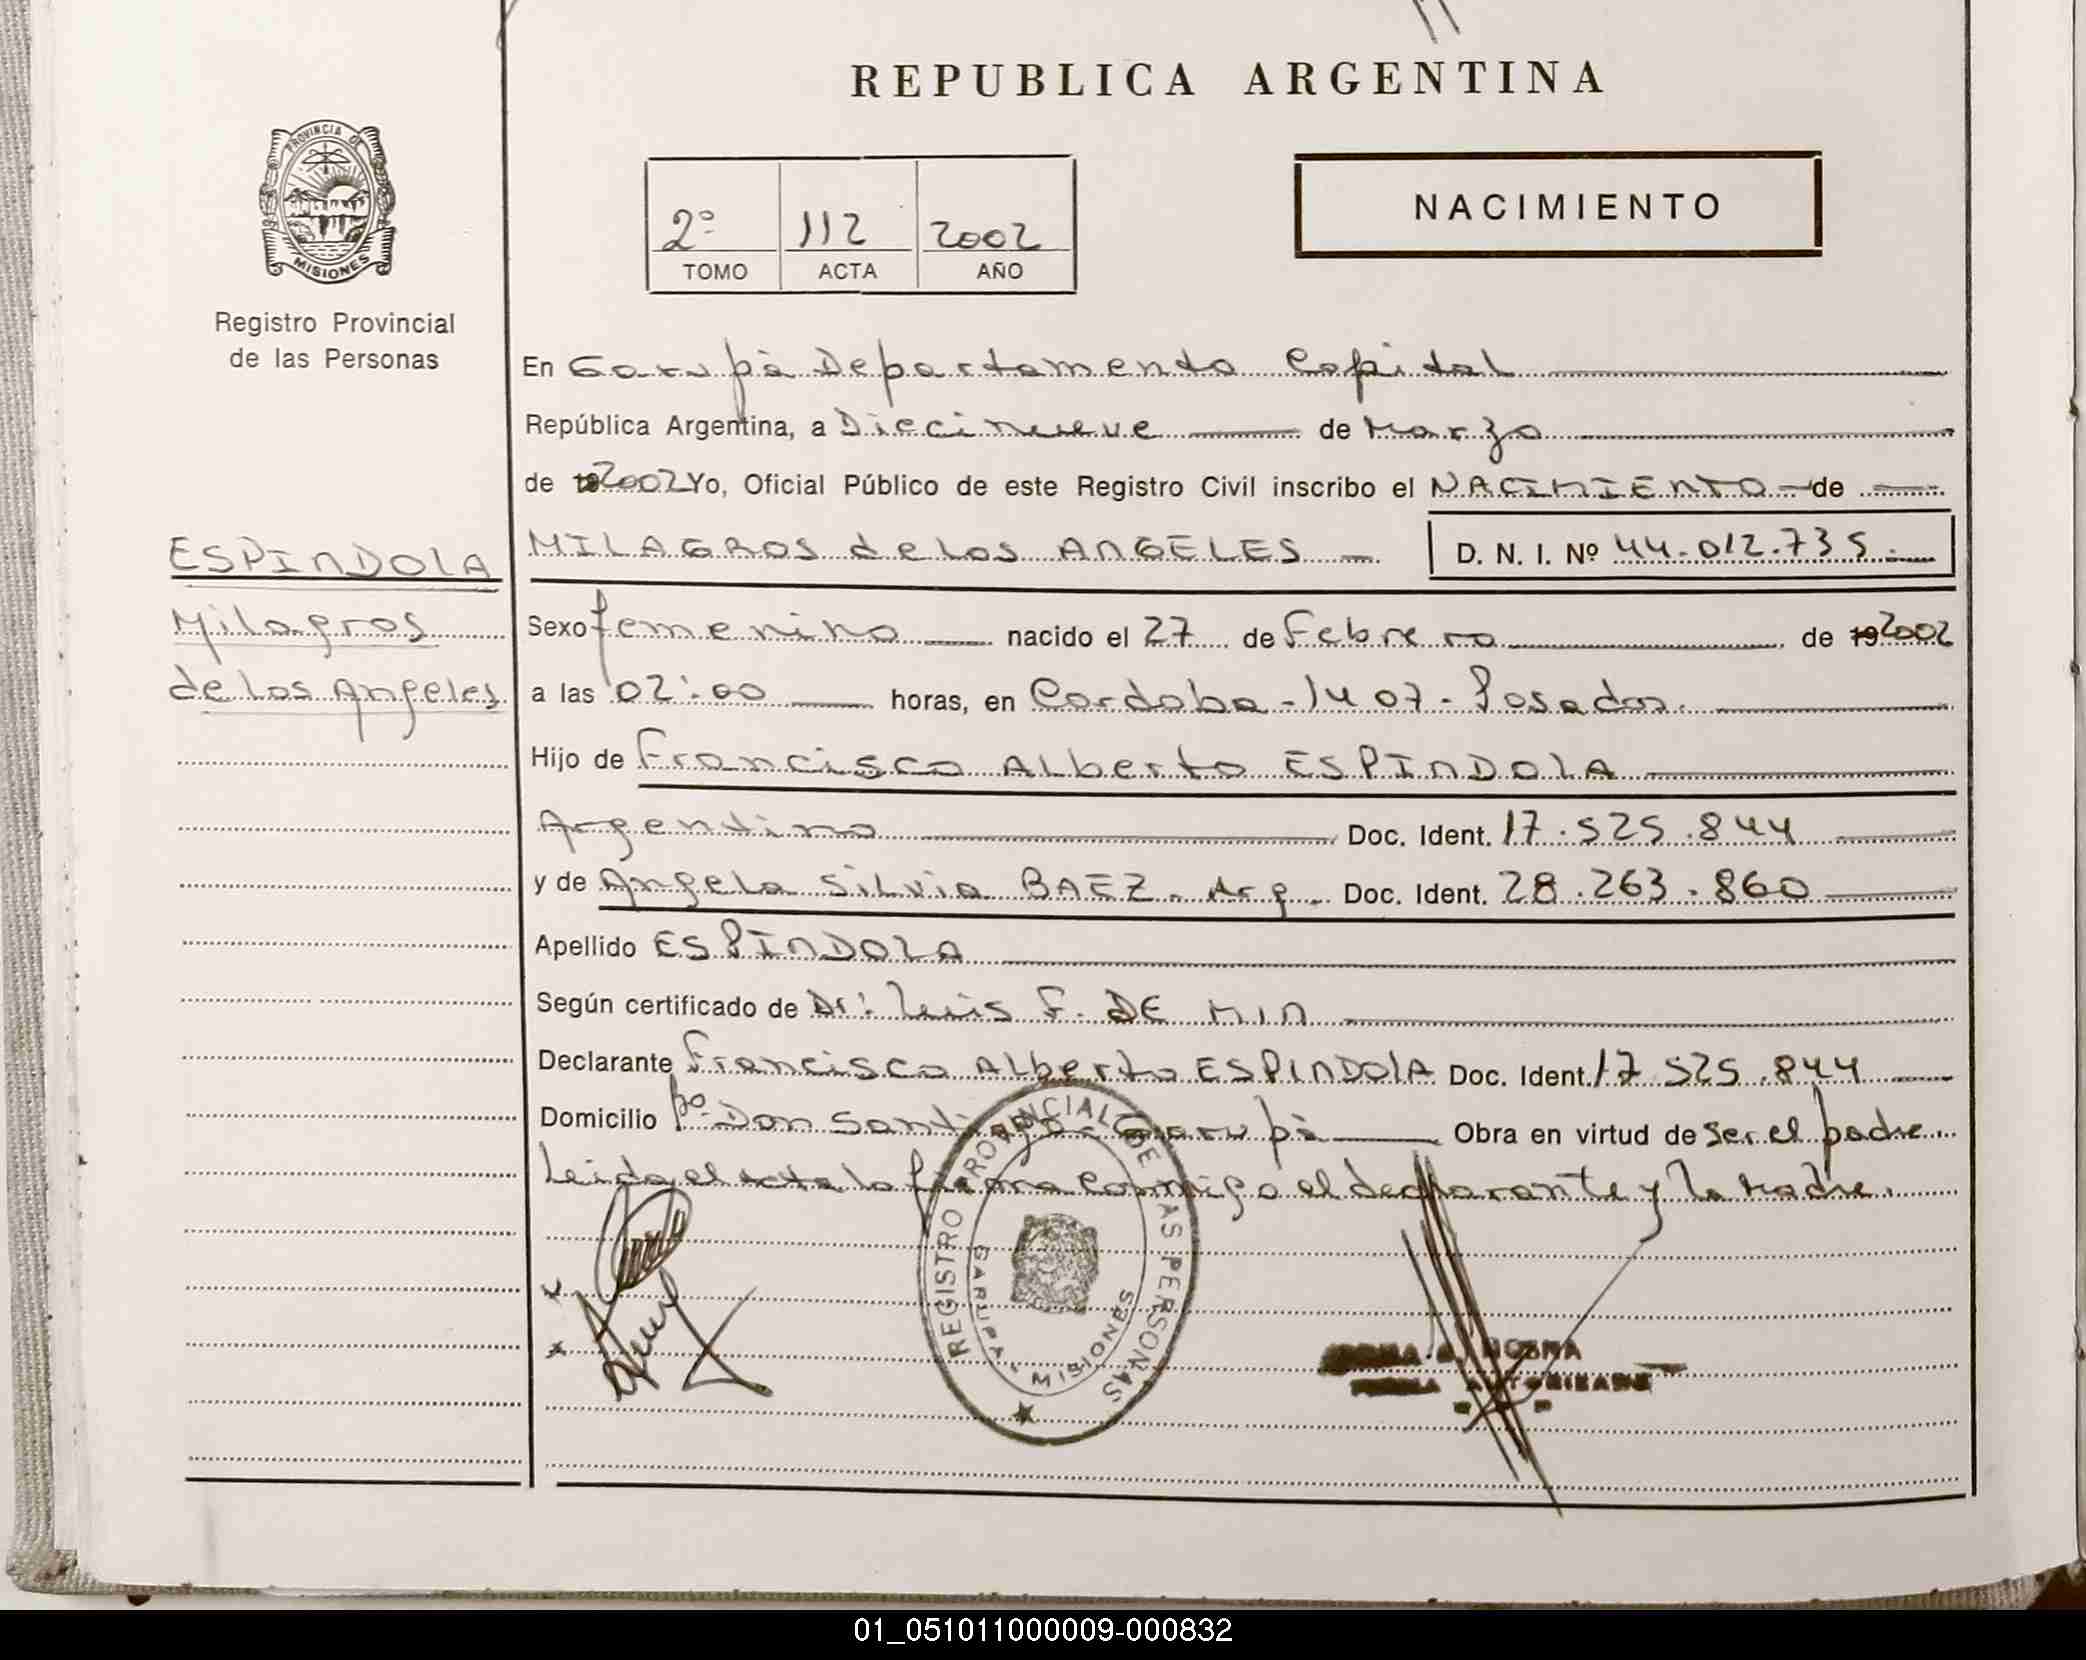 REPUBLICA ARGENTINA
PROVINCIA DE
MISIONES
Registro Provincial
de las Personas
2º 112 2002
TOMO ACTA AÑO
NACIMIENTO
En Garupà Departamento Capital
República Argentina, a Diecinueve de Marzo
de 19 2002 Yo, Oficial Público de este Registro Civil inscribo el NACIMIENTO de
ESPINDOLA
Milagros
de Los Angeles
MILAGROS de Los ANGELES
D. N. I. Nº 44.012.735.
Sexo femenino nacido el 27 de Febrero de 19 2002
a las 02:00 horas, en Cordoba - 1407 - Posadas.
Hijo de Francisco ALberto ESPINDOLA
Argentino Doc. Ident. 17.525.844
y de Angela SiLvia BAEZ. Arg. Doc. Ident. 28.263.860
Apellido ESPINDOLA
Según certificado de Dr: Luis F. DE MIN
Declarante Francisco ALberto ESPINDOLA Doc. Ident. 17.525.844
Domicilio Bº. Don Santiago - Garupà Obra en virtud de ser el padre.
Leida el acta la firma conmigo el declarante y la Madre.
REGISTRO PROVINCIAL DE LAS PERSONAS
GARUPA - MISIONES
AUTORIZADA
01_051011000009-000832